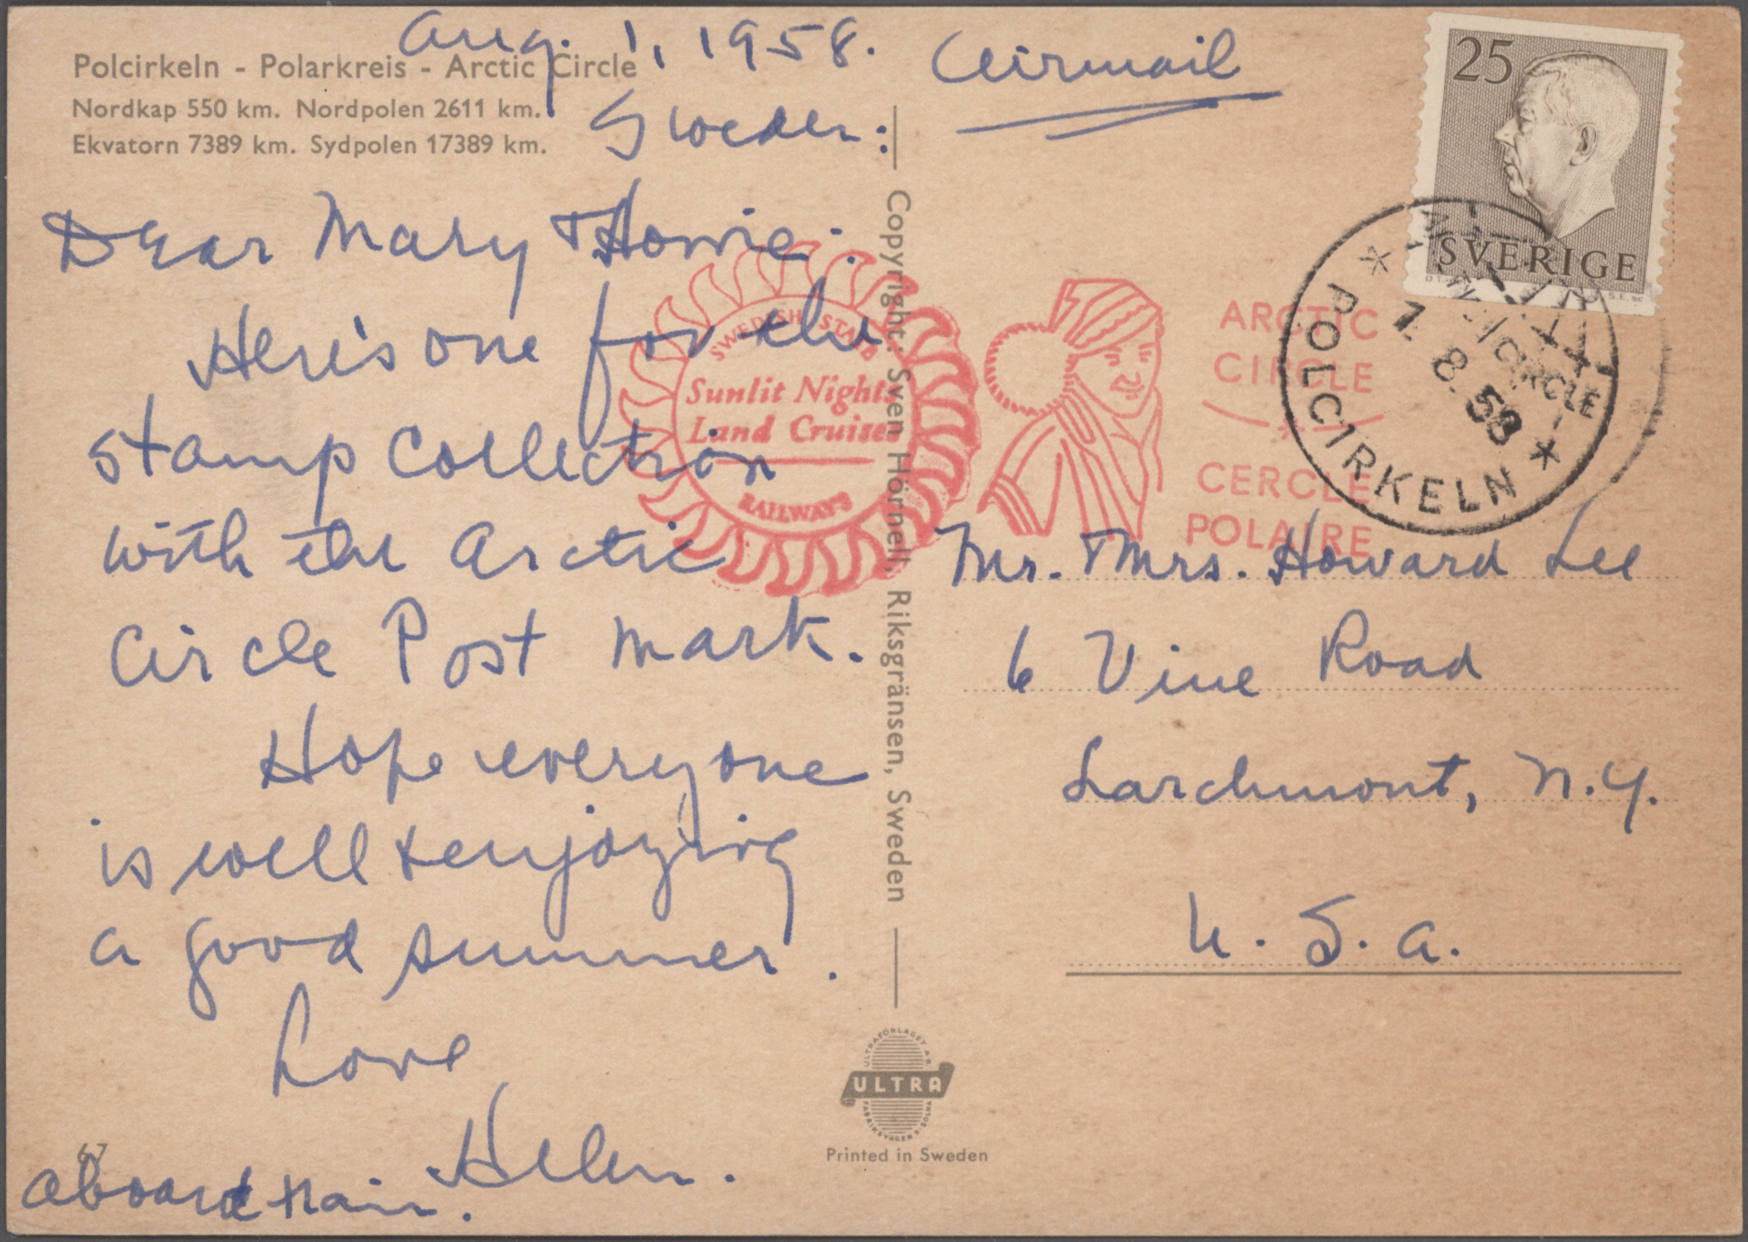 Aug. 1, 1958.
Airmail
Polcirkeln - Polarkreis - Arctic Circle
Nordkap 550 km. Nordpolen 2611 km.
Ekvatorn 7389 km. Sydpolen 17389 km.
Sweden:
25
SVERIGE
Dear Mary & Howie:
Here's one for the
stamp collection
with the Arctic
Circle Post mark.
Hope everyone
is well & enjoying
a good summer.
Love
Helen.
aboard train.
67
SWEDISH STATE
Sunlit Nights
Land Cruises
RAILWAYS
ARCTIC
CIRCLE
CERCLE
POLAIRE
POLCIRKELN
1. 8. 58
Copyright: Sven Hörnell, Riksgränsen, Sweden
Mr. & Mrs. Howard Lee
6 Vine Road
Larchmont, N.Y.
U. S. A.
ULTRA
Printed in Sweden